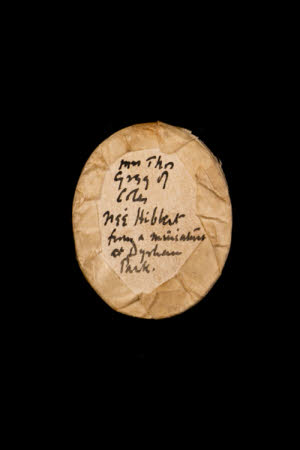 Mrs Thos
Gregg of
Coles
Née Hibbert
from a miniature
at Dyrham
Park.